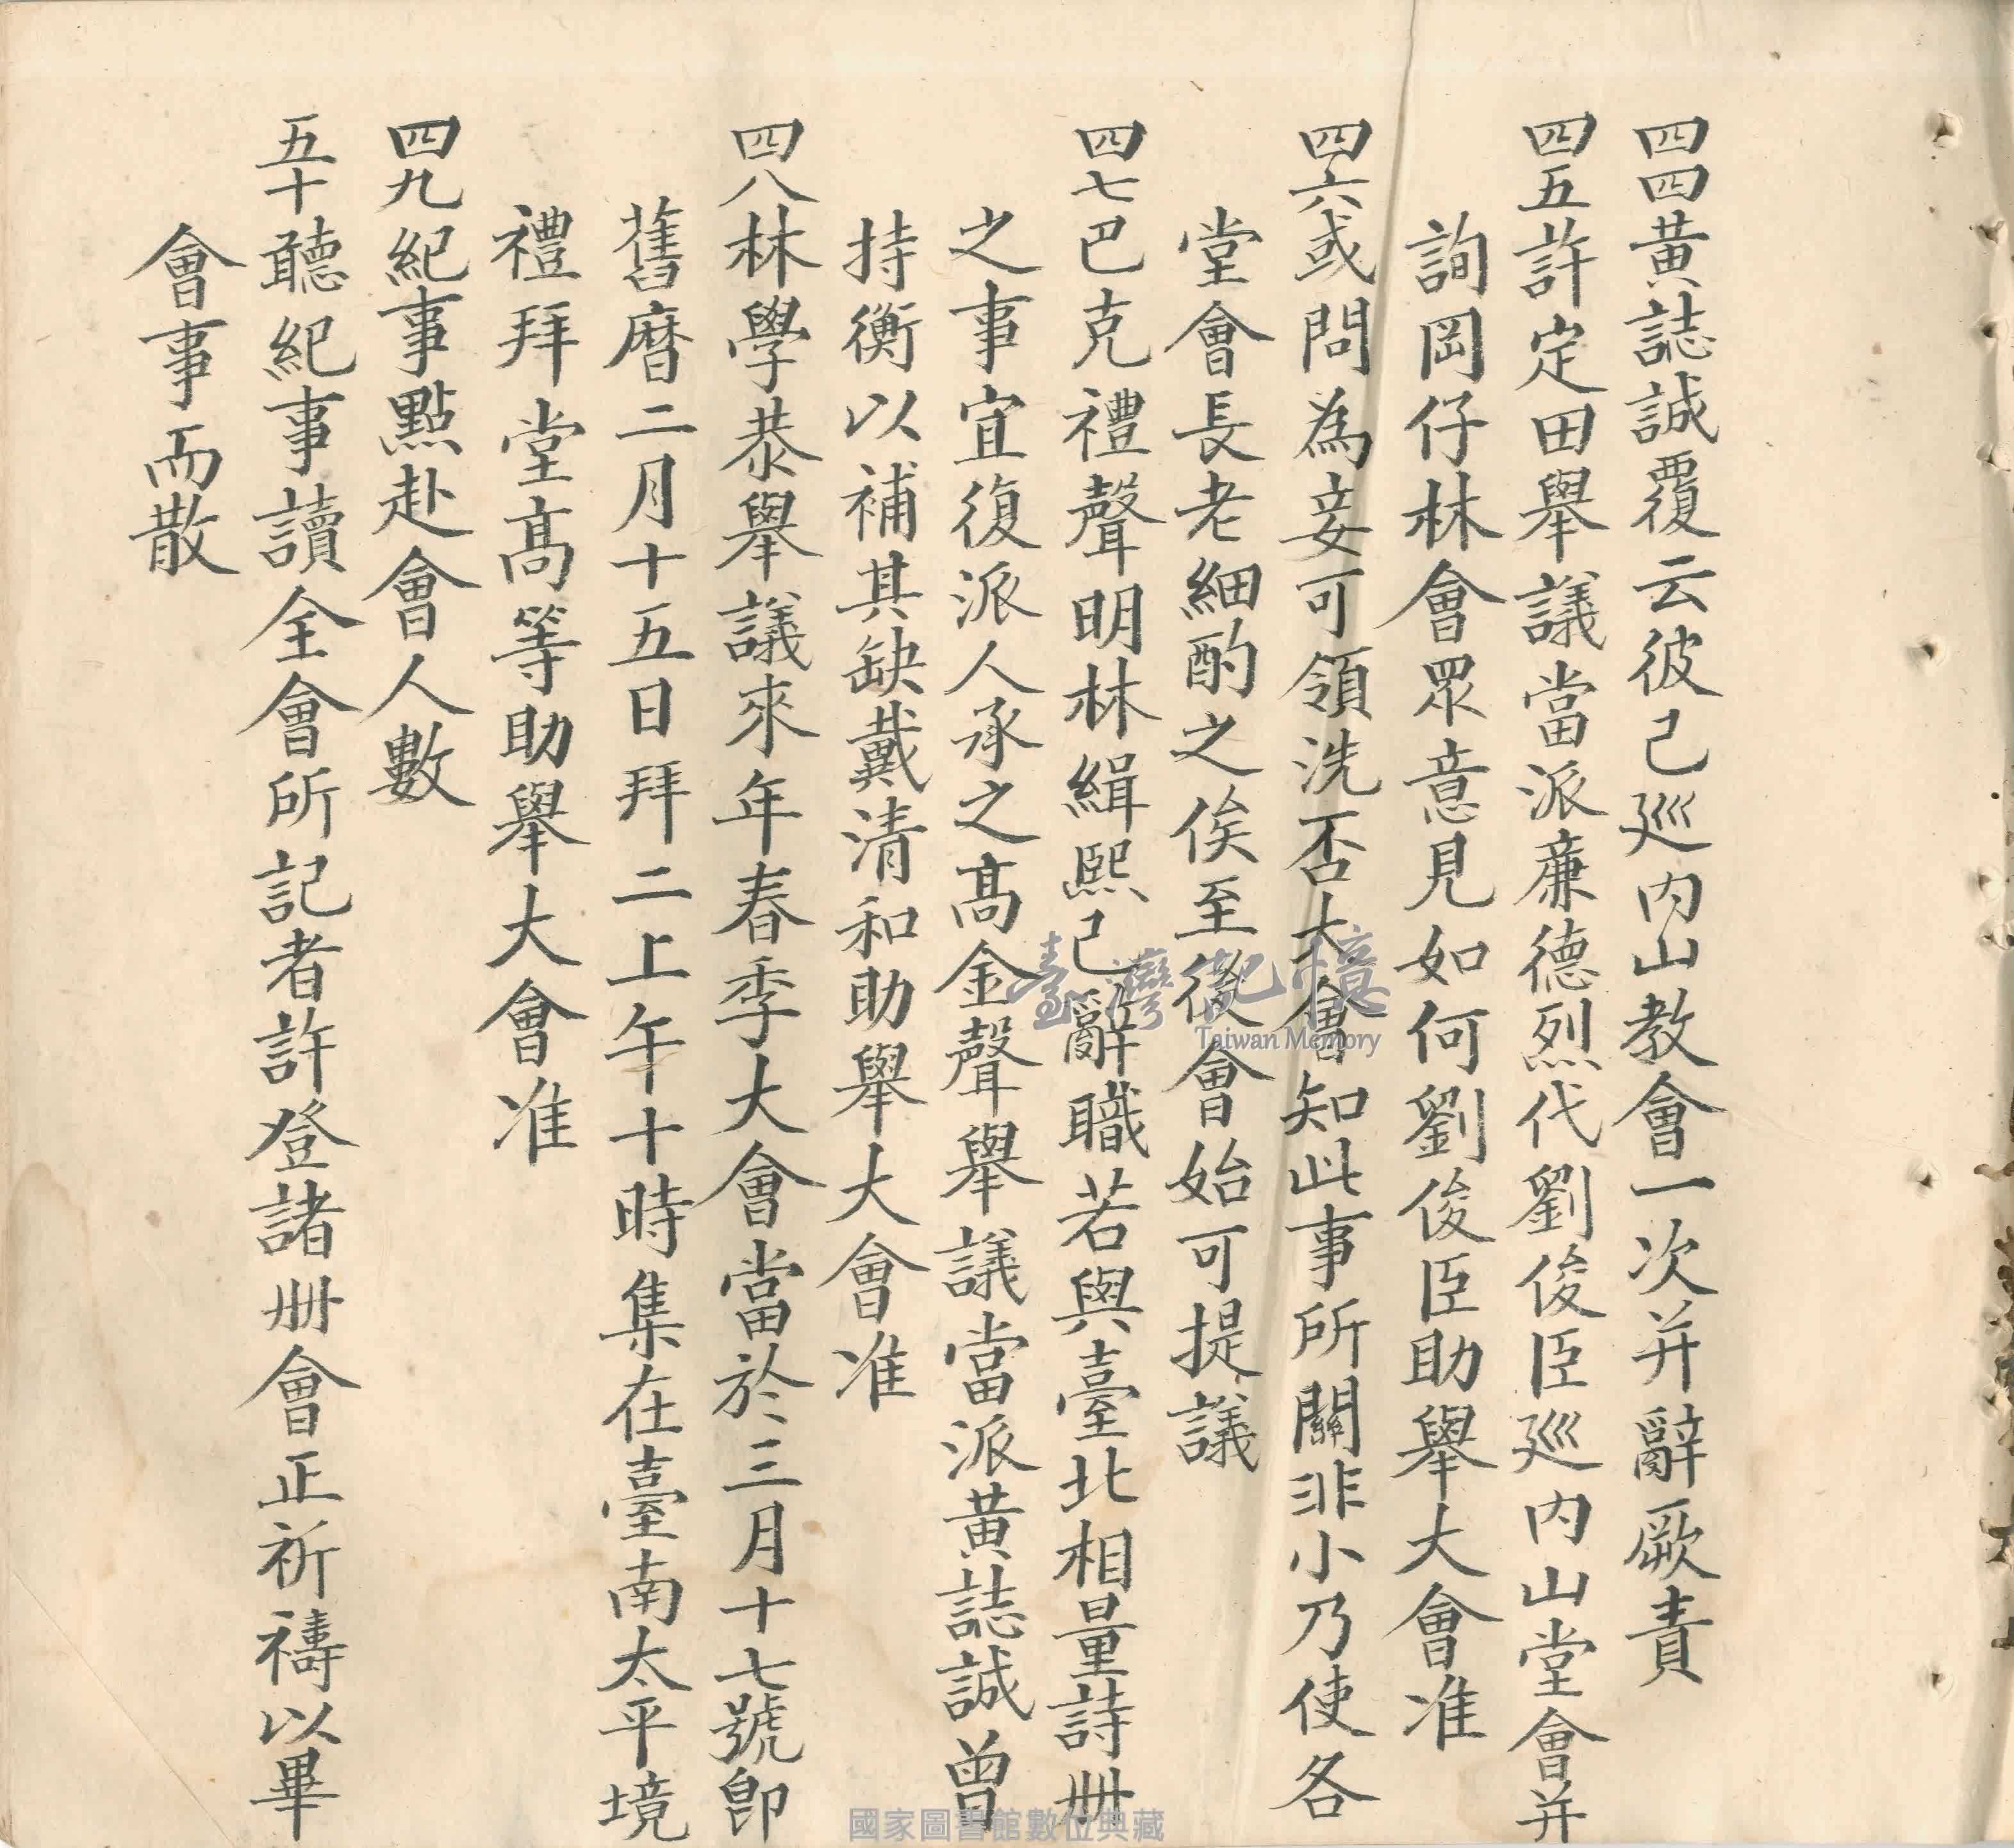 四四黃誌誠覆云彼已廵內山教會一次并辭厥責
四五許定田舉議當派廉德烈代劉俊臣廵內山堂會并
詢岡仔林會眾意見如何劉俊臣助舉大會准
四六或問為妾可領洗否大會知此事所關非小乃使各
堂會長老細酌之俟至後會始可提議
四七巴克禮聲明林緝熙已辭職若與臺北相量詩冊
之事宜復派人承之高金聲舉議當派黃誌誠曾
持衡以補其缺戴清和助舉大會准
四八林學恭舉議來年春季大會當於三月十七號即
舊曆二月十五日拜二上午十時集在臺南太平境
禮拜堂高等助舉大會准
四九紀事點赴會人數
五十聽紀事讀全會所記者許登諸冊會正祈禱以畢
會事而散
臺灣記憶
Taiwan Memory
國家圖書館數位典藏